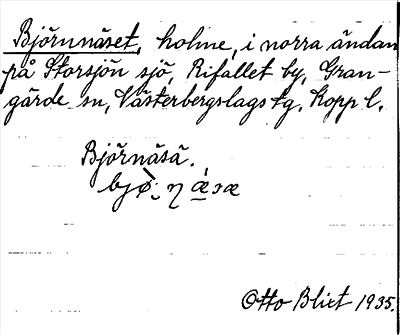 Björnnäset, holme, i norra ändan
på Storsjön sjö, Rifallet by, Gran-
gärde sn, Västerbergslags tg, Kopp l.
Björnäsä.
Otto Blixt 1935.